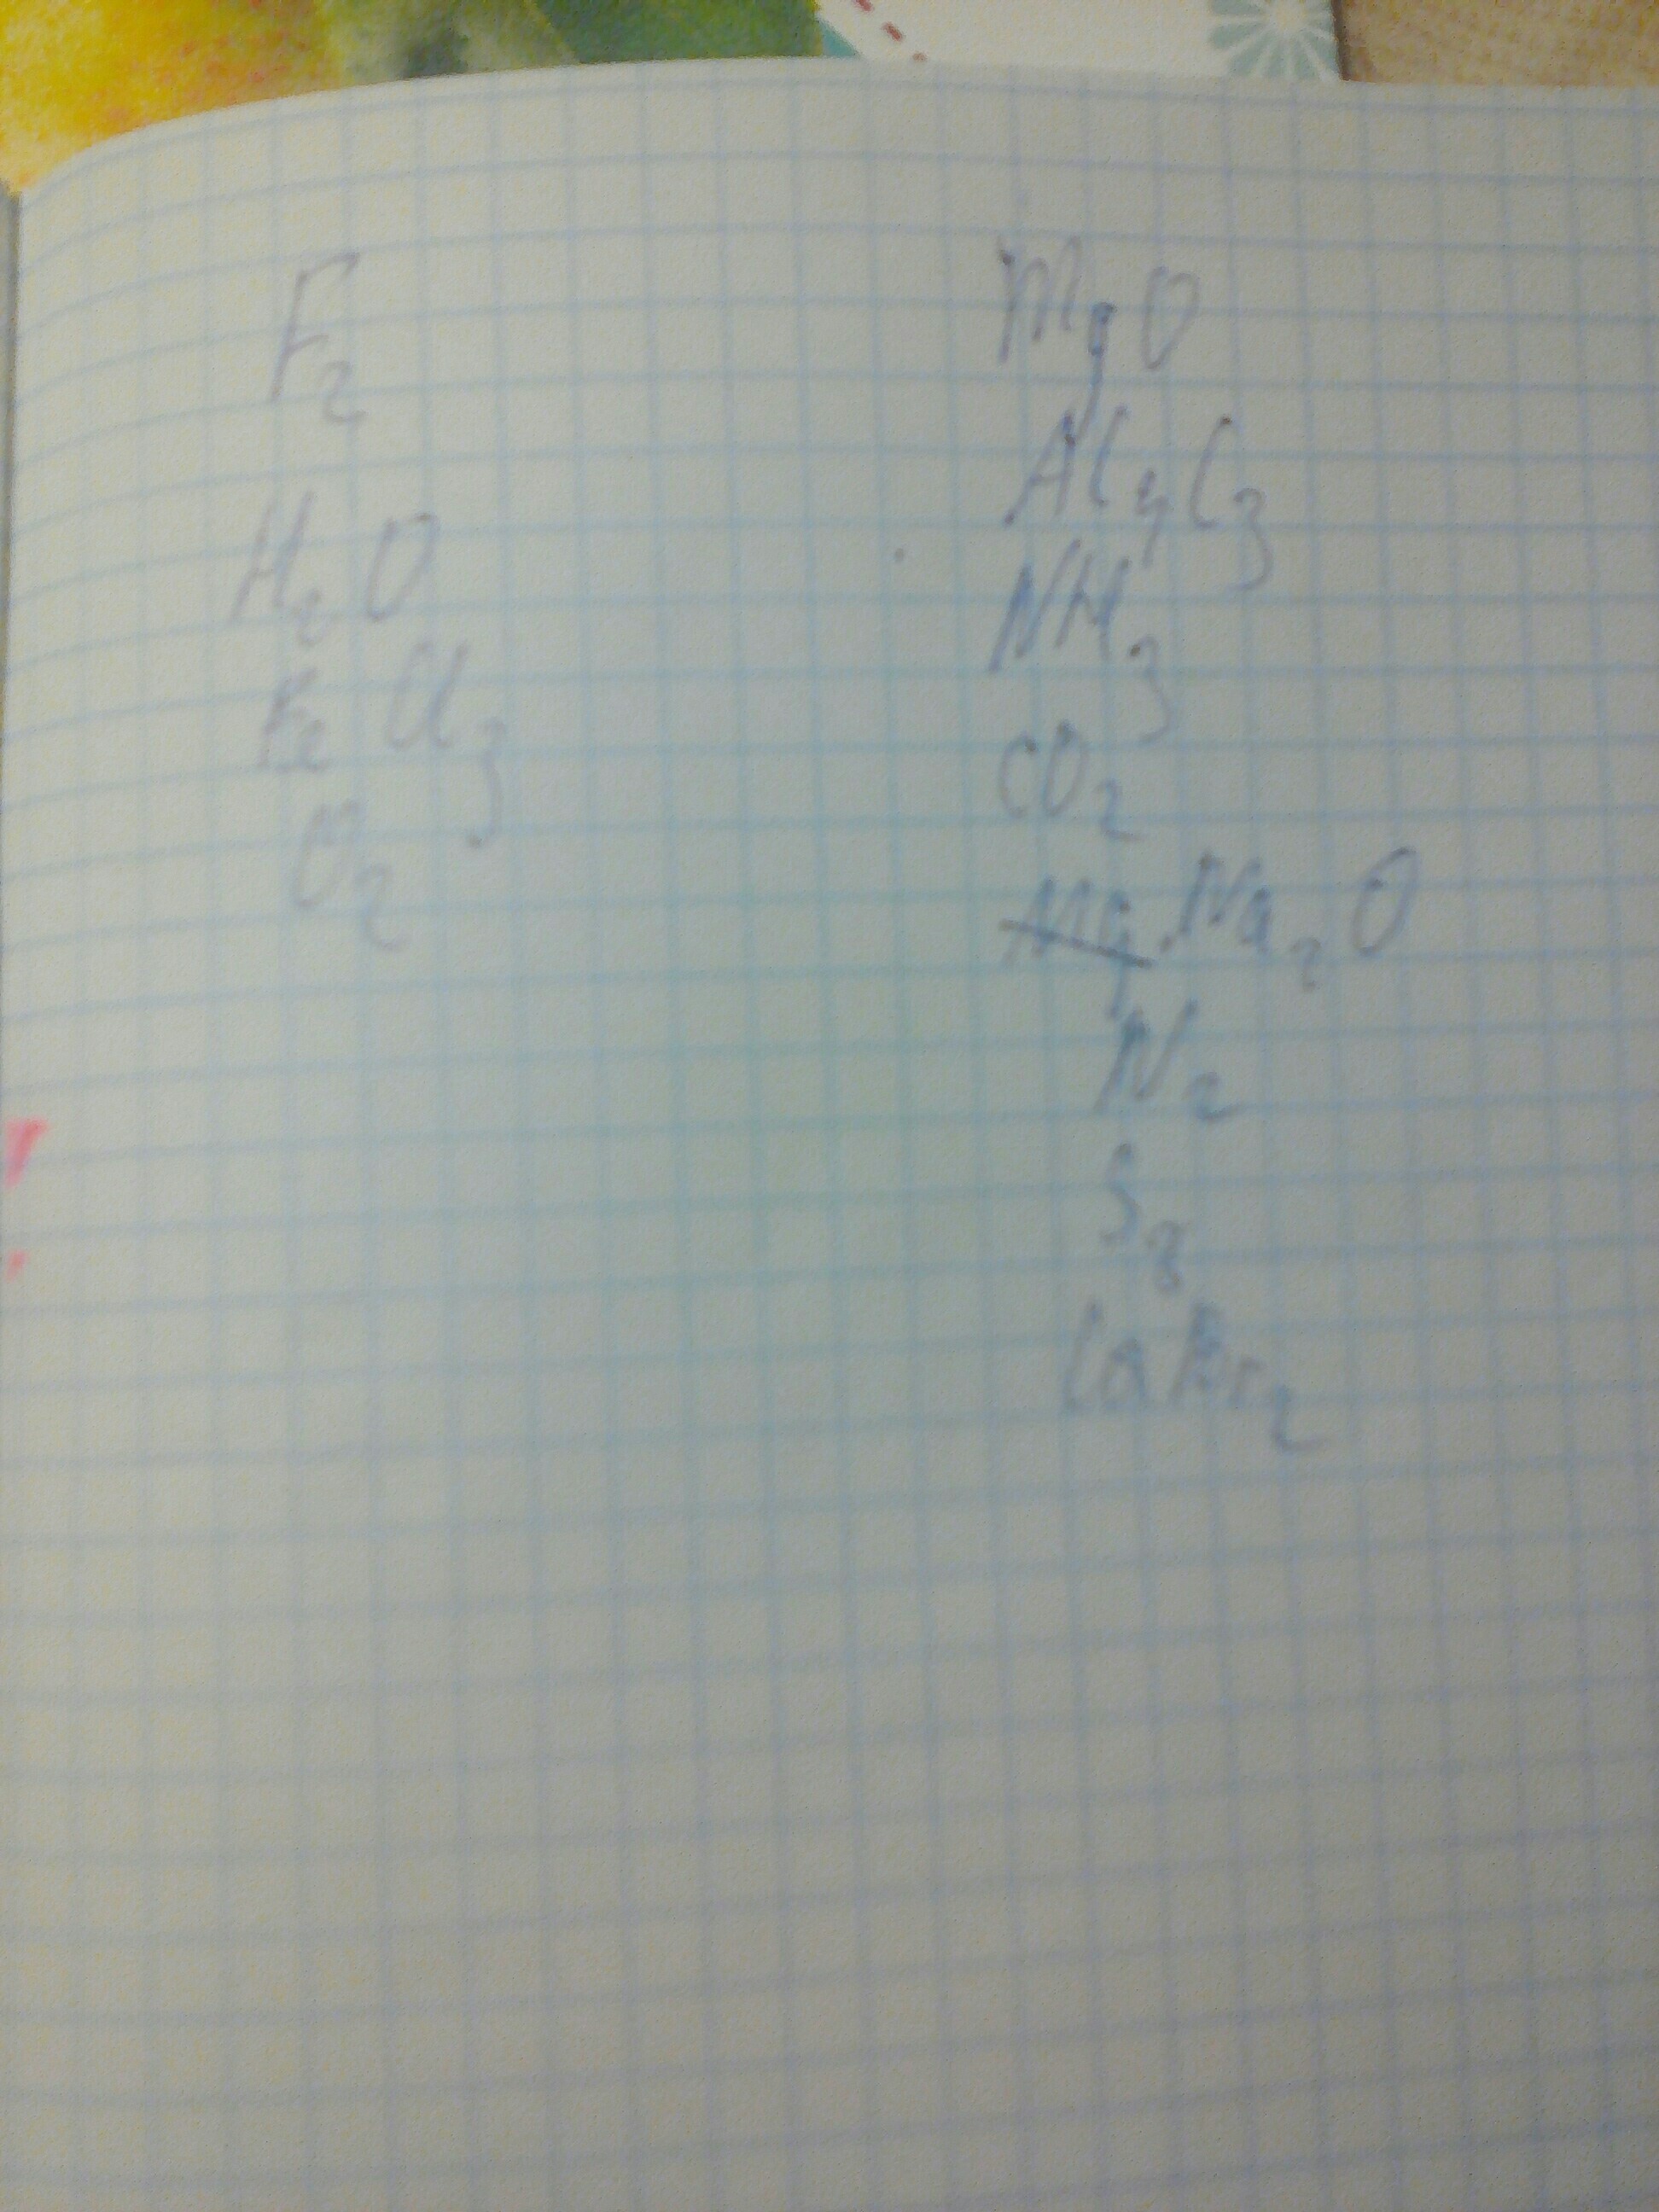 F2
H2O
FeCl3
O2
MgO
Al4C3
NH3
CO2
Mg Na2O
N2
S8
CaBr2